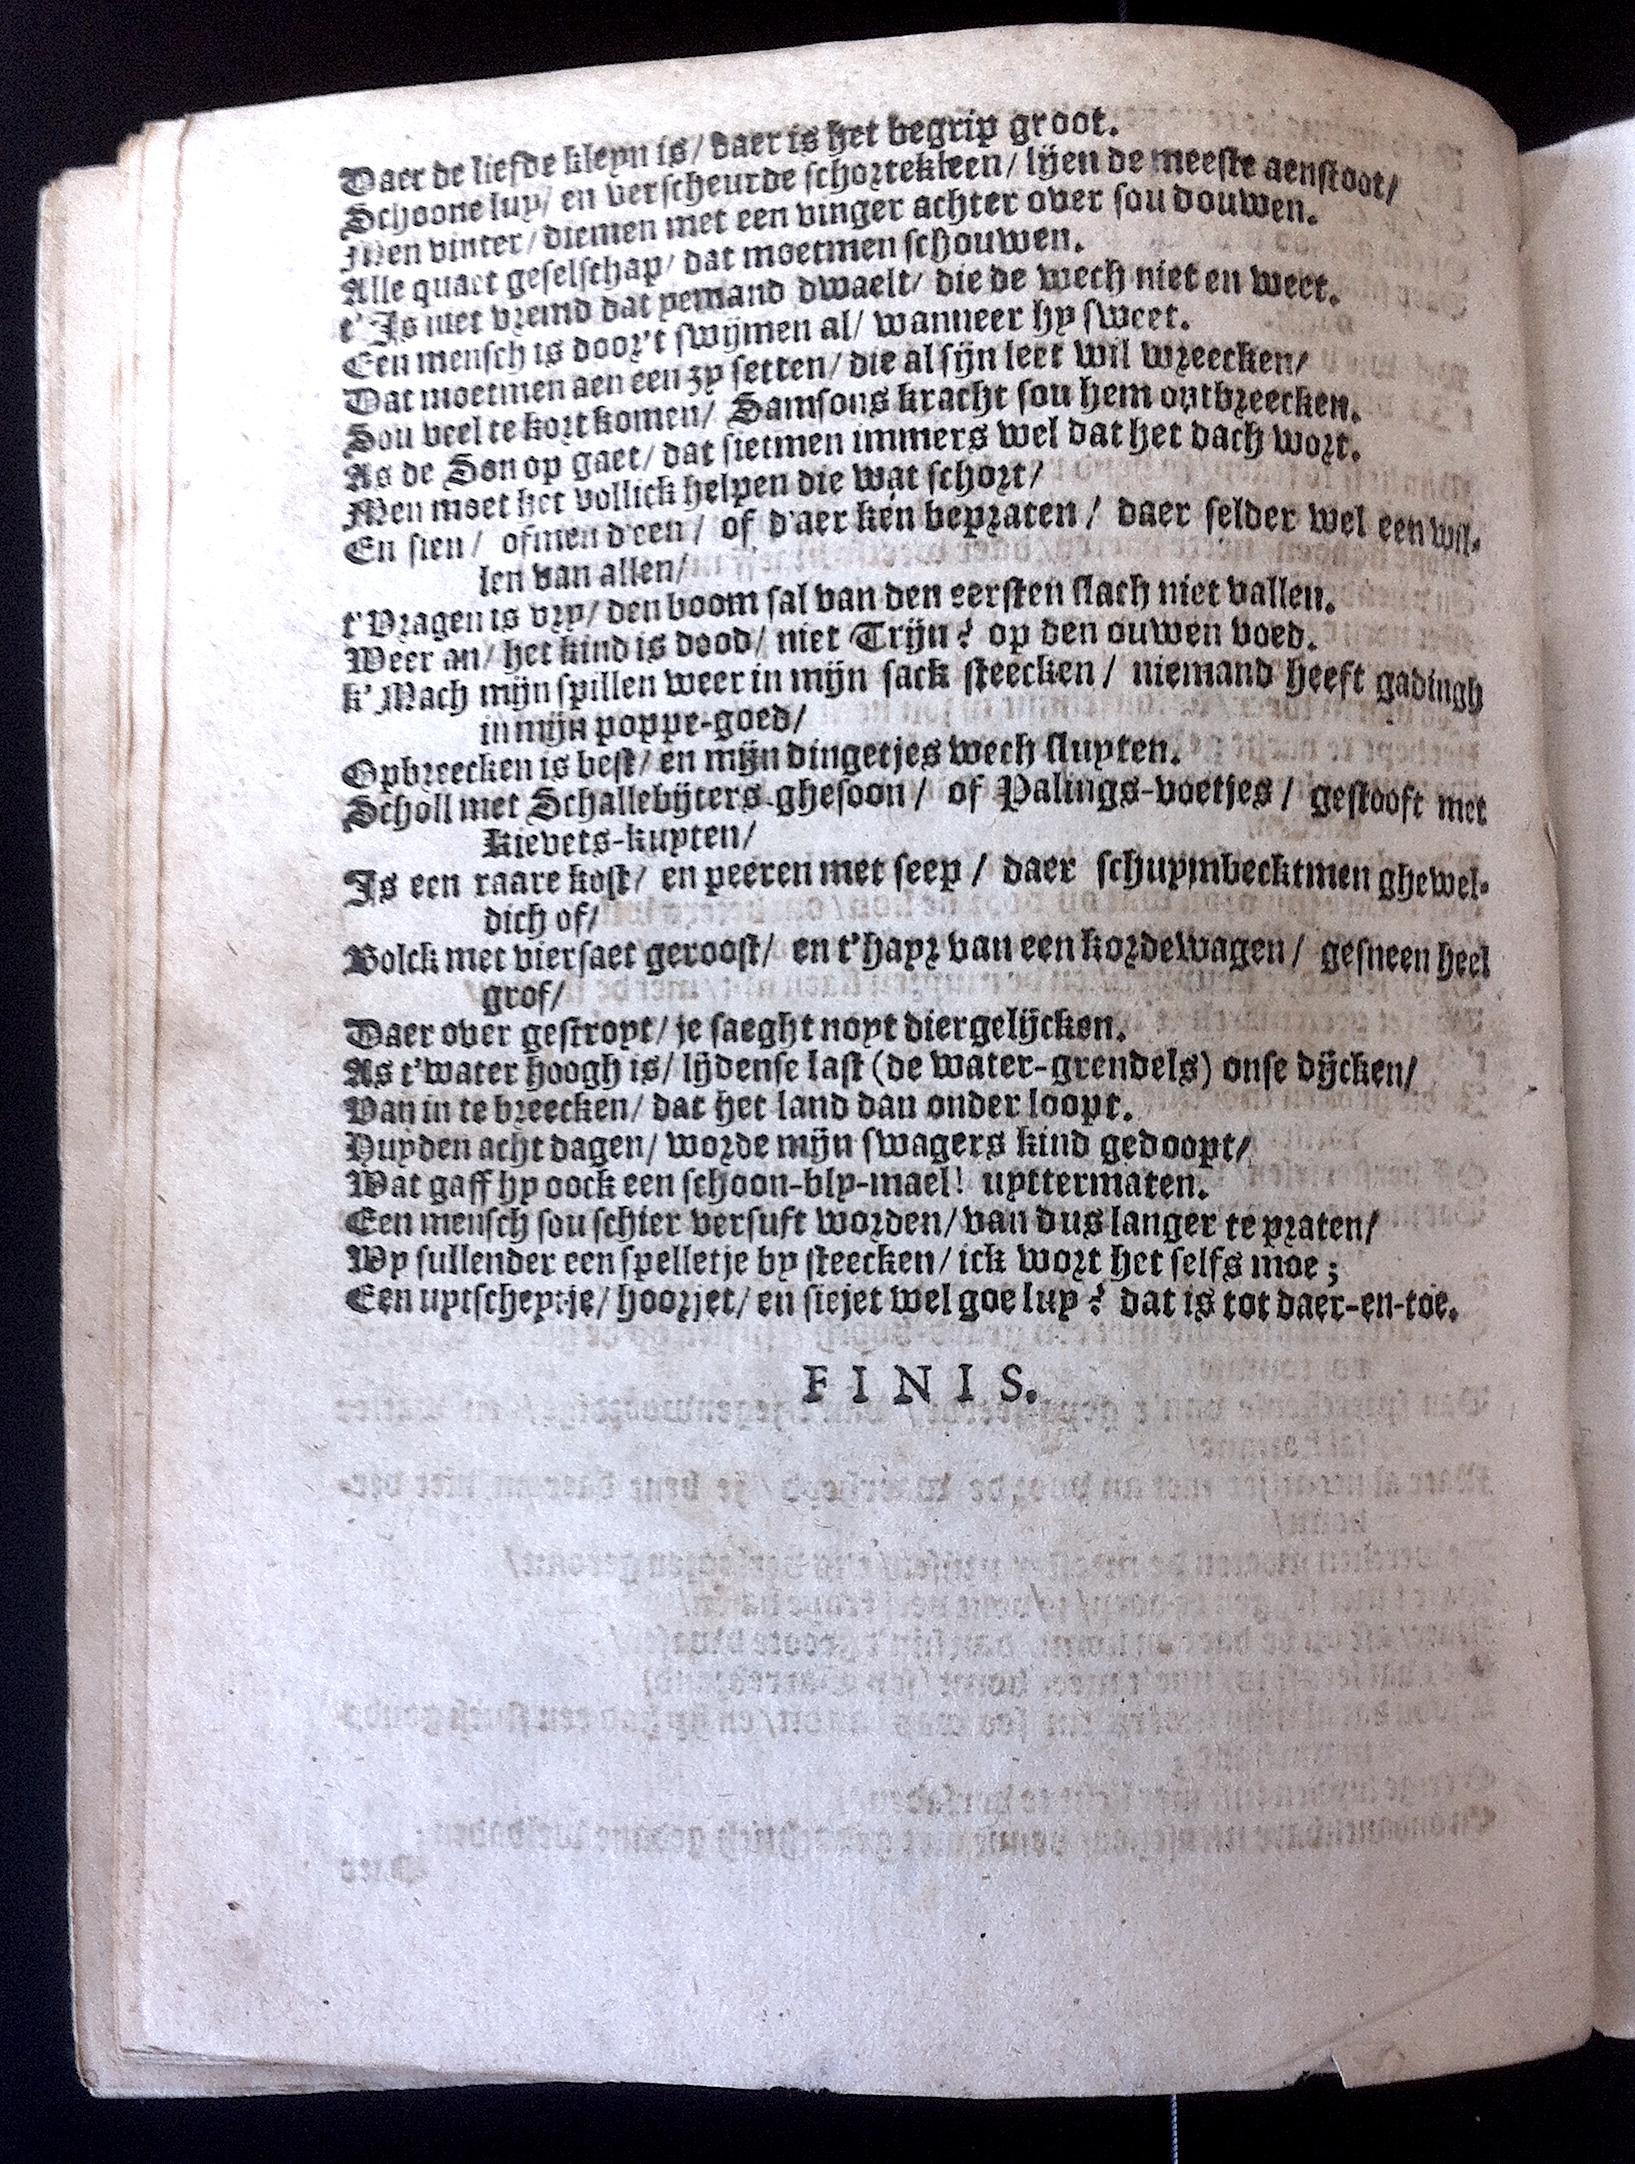 Daer de liefde kleyn is/ daer is het begrip groot.
Schoone luy/ en verscheurde schortekleen/ lijen de meeste aenstoot/
Men vinter/ diemen met een vinger achter over sou douwen.
Alle quaet geselschap/ dat moetmen schouwen.
t'Is niet vremd dat yemand dwaelt/ die de wech niet en weet.
Een mensch is door't swijmen al/ wanneer hy sweet.
Dat moetmen aen een zy setten/ die al sijn leet wil wreecken/
Sou veel te kort komen/ Samsons kracht sou hem ontbreecken.
As de Son op gaet/ dat sietmen immers wel dat het dach wort.
Men moet het vollick helpen die wat schort/
En sien/ ofmen d'een/ of d'aer ken bepraten/ daer selder wel een wil-
len van allen/
t'Vragen is vry/ den boom sal van den eersten slach niet vallen.
Weer an/ het kind is dood/ niet Trijn? op den ouwen voed.
k'Mach mijn spillen weer in mijn sack steecken/ niemand heeft gadingh
in mijn poppe-goed/
Opbreecken is best/ en mijn dingetjes wech sluyten.
Scholl met Schallebijters ghesoon/ of Palings-voetjes/ gestooft met
Kievets-kuyten/
Is een raare kost/ en peeren met seep/ daer schuymbecktmen ghewel-
dich of/
Bolck met viersaet geroost/ en t'hayr van een kordewagen/ gesneen heel
grof/
Daer over gestroyt/ je saeght noyt diergelijcken.
As t'water hoogh is/ lijdense last (de water-grendels) onse dijcken/
Van in te breecken/ dat het land dan onder loopt.
Huyden acht dagen/ worde mijn swagers kind gedoopt/
Wat gaff hy oock een schoon-bly-mael! uyttermaten.
Een mensch sou schier versuft worden/ van dus langer te praten/
Wy sullender een spelletje by steecken/ ick wort het selfs moe;
Een uytscheptje/ hoorjet/ en siejet wel goe luy? dat is tot daer-en-toe.
FINIS.